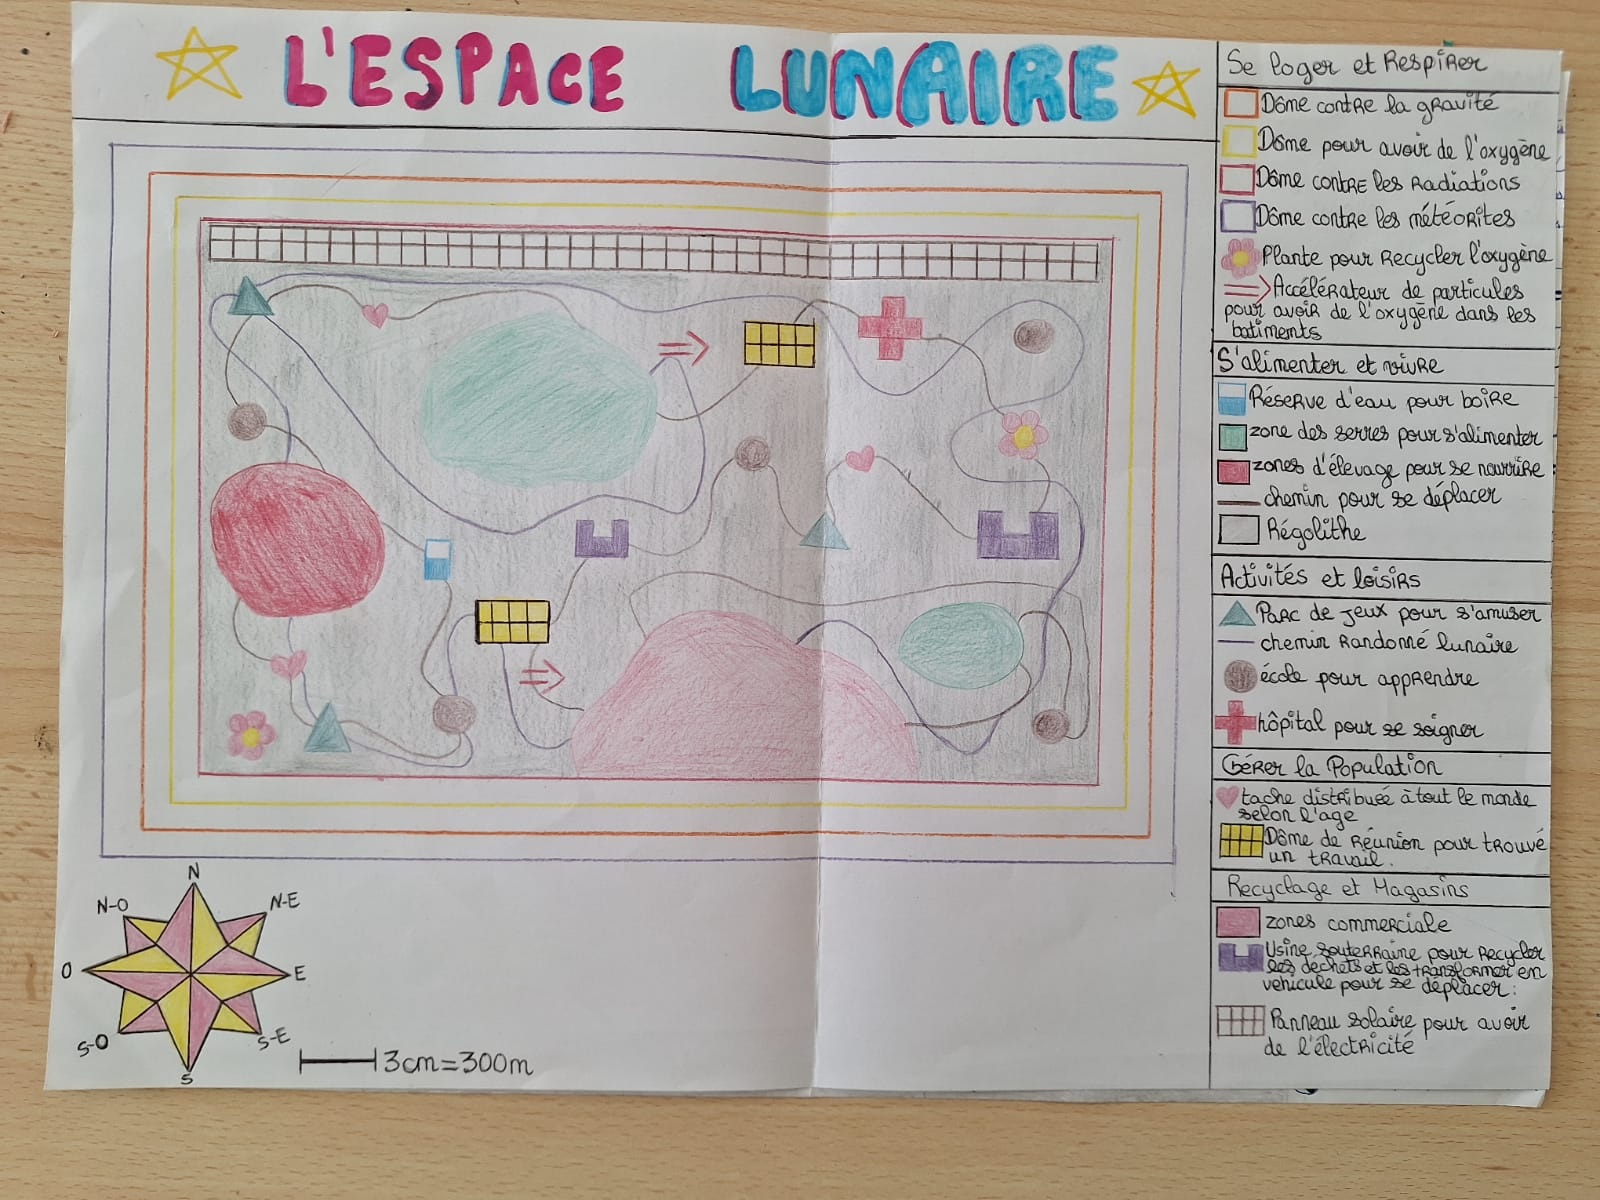 L'ESPACE LUNAIRE
Se loger et Respirer
Dôme contre la gravité
Dôme pour avoir de l'oxygène
Dôme contre les radiations
Dôme contre les météorites
Plante pour recycler l'oxygène
Accélérateur de particules
pour avoir de l'oxygène dans les
batiments
S'alimenter et vivre
Réserve d'eau pour boire
zone des serres pour s'alimenter
zones d'élevage pour se nourrire
chemin pour se déplacer
Régolithe
Activités et loisirs
Parc de jeux pour s'amuser
chemin randonné lunaire
école pour apprendre
hôpital pour se soigner
Gérer la Population
tache distribuée à tout le monde
selon l'age
Dôme de réunion pour trouvé
un travail.
Recyclage et Magasins
zones commerciale
Usine souterraine pour recycler
les déchets et les transformer en
véhicule pour se déplacer :
Panneau solaire pour avoir
de l'électricité
N
N-O
N-E
O
E
S-O
S-E
S
3cm=300m